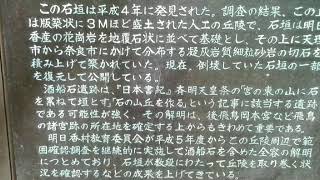 この石垣は平成4年に発見された。調査の結果、この丘
は版築状に3Mほど盛土された人工の丘陵で、石垣は明日
香産の花崗岩を地覆石状に並べて基礎とし、その上に天理
市から奈良市にかけて分布する凝灰岩質細粒砂岩の切石を
積み上げて築かれていた。現在、倒壊していた石垣の一部
を復元して公開している。
酒船石遺跡は、『日本書紀』斉明天皇条の「宮の東の山に石
を累ねて垣とす。「石の山丘を作る。」という記事に該当する遺跡
である可能性が強く、その解明は、後飛鳥岡本宮など飛鳥
の諸宮跡の所在地を確定する上からもきわめて重要である。
明日香村教育委員会が平成5年度からこの丘陵周辺で範
囲確認調査を継続的に実施して酒船石を含めた全容の解明
につとめており、石垣が数段にわたって丘陵を取り巻く状
況を確認するなどの成果を上げてきている。